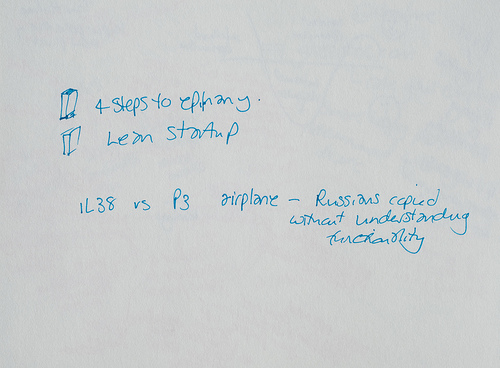 4 steps to epiphany.
Lean Startup
IL38 vs P3 airplane – Russians copied
without understanding
functionality